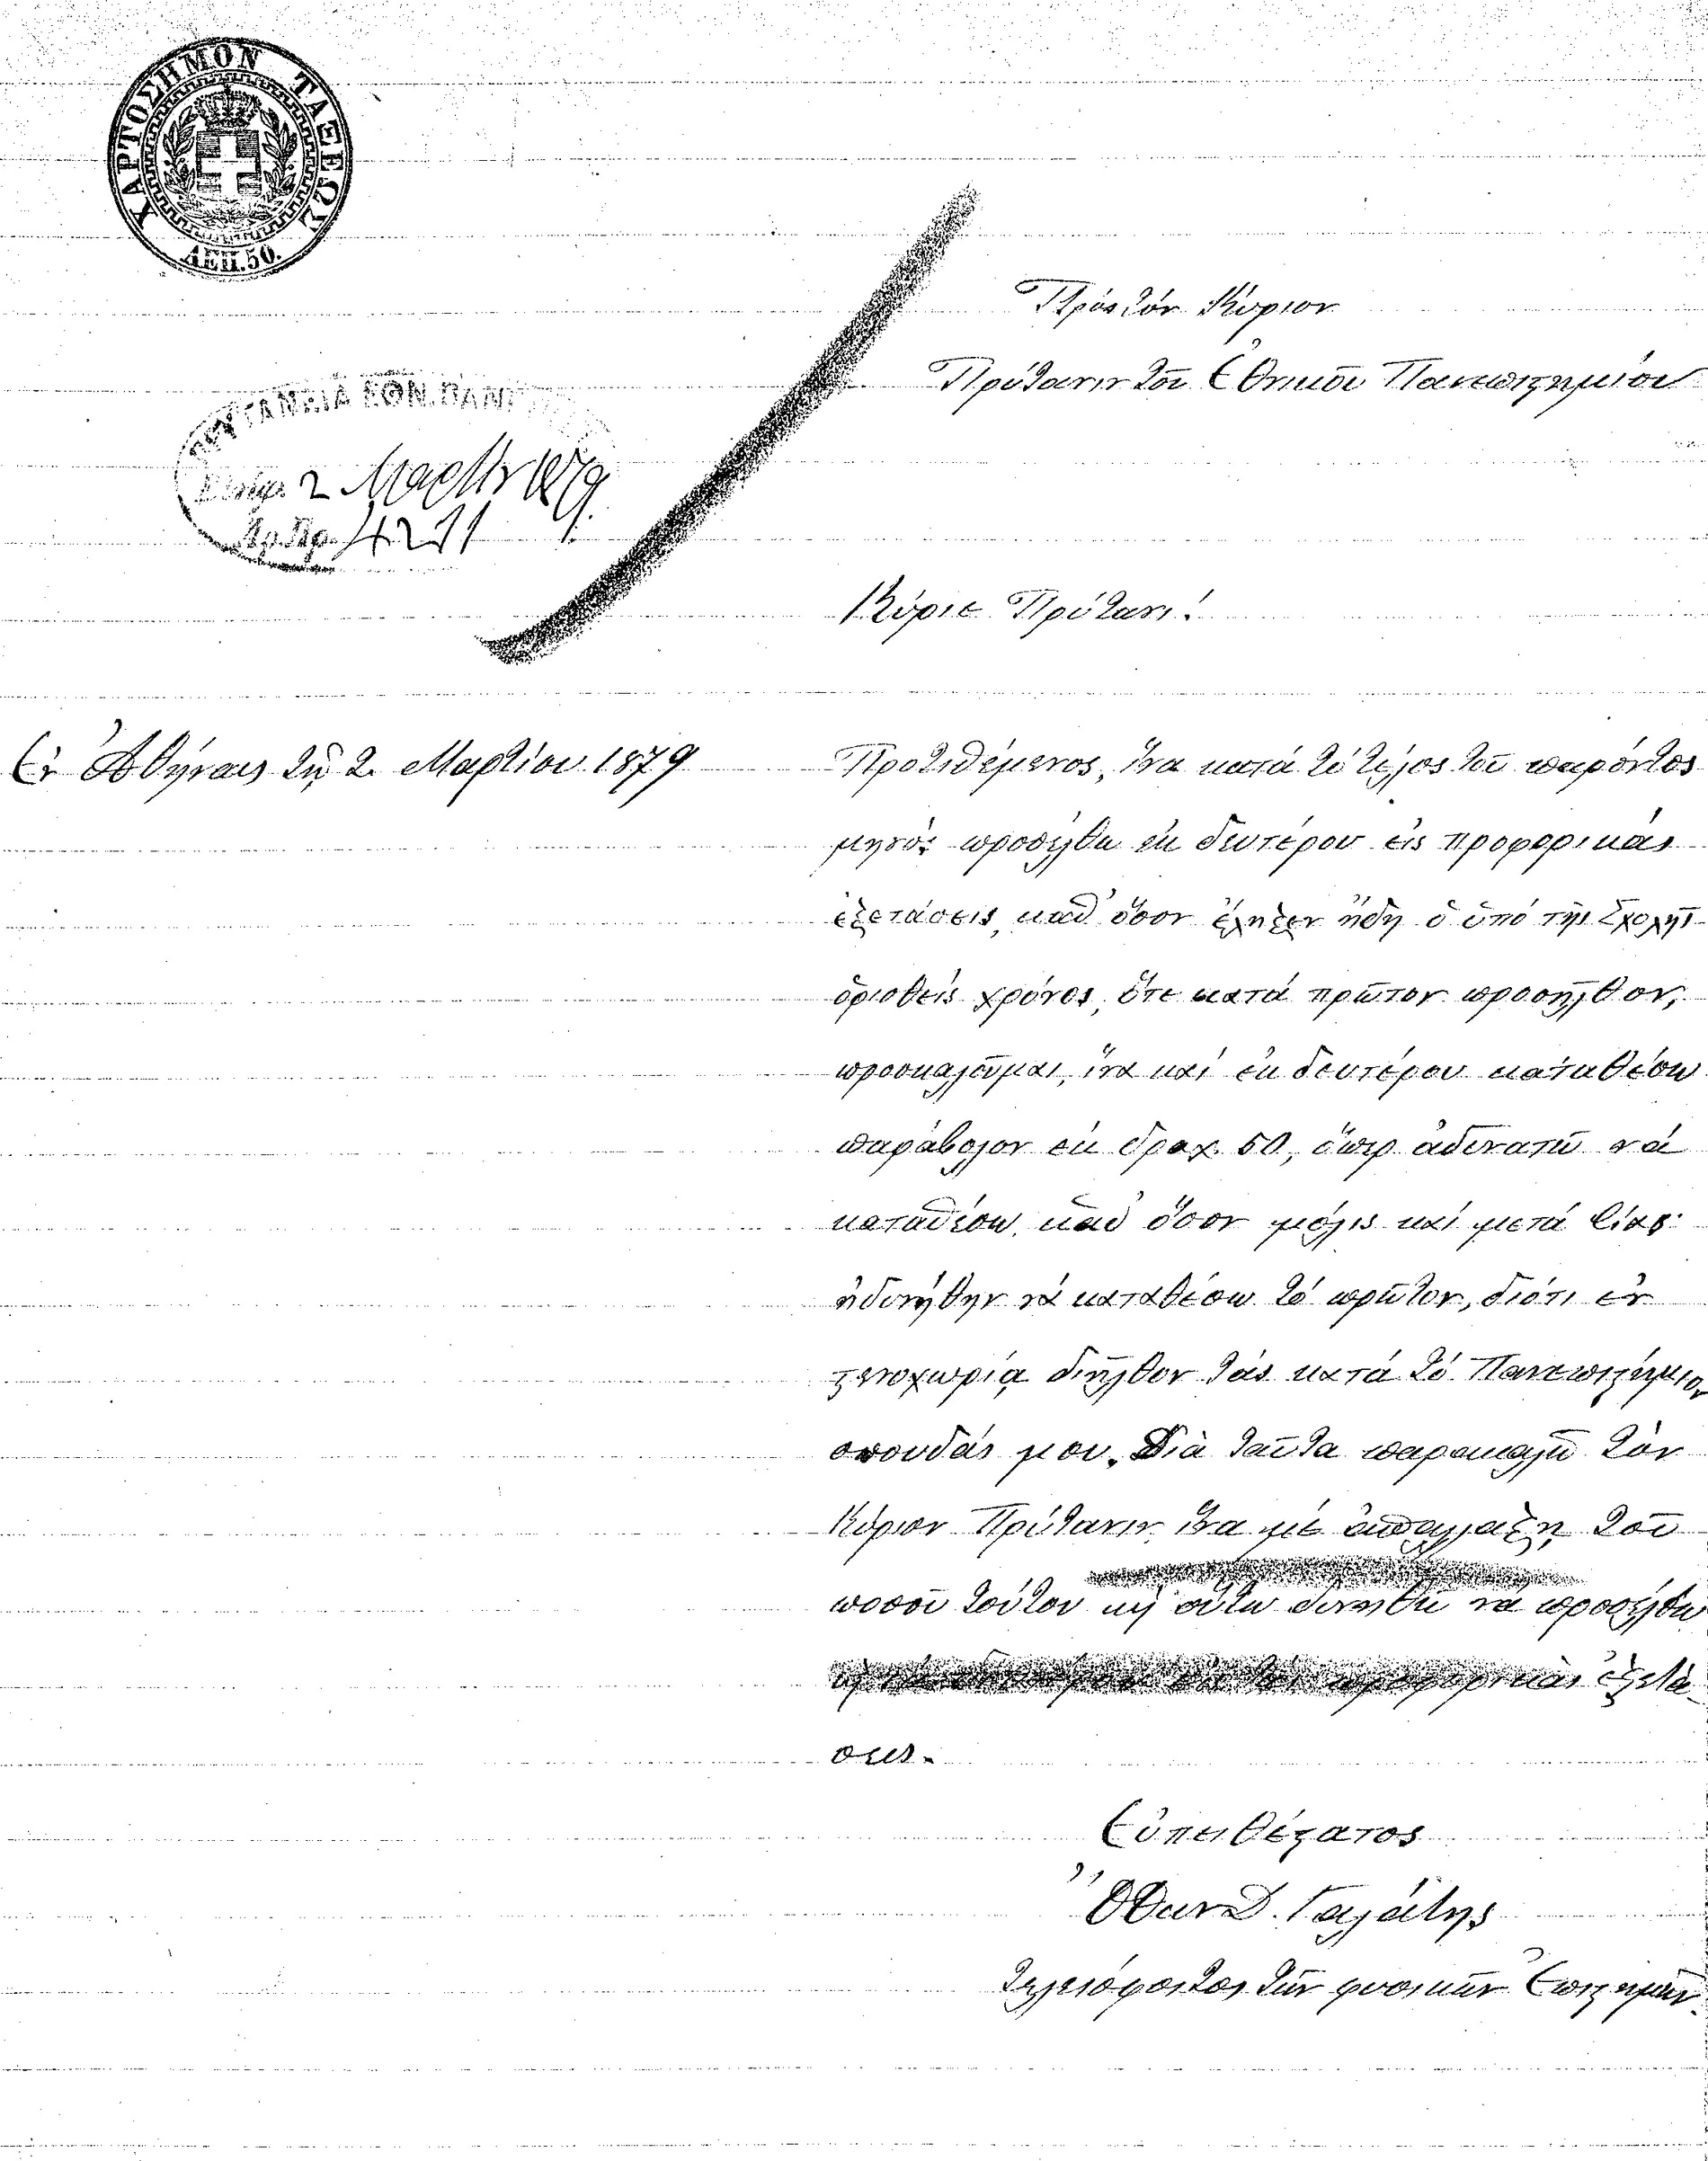 ΧΑΡΤΟΣΗΜΟΝ ΤΑΞΕΩΣ
ΛΕΠ. 50.
Πρὸς τὸν Κύριον
Πρύτανιν τοῦ Ἐθνικοῦ Πανεπιστημίου
ΠΡΥΤΑΝΕΙΑ ΕΘΝ. ΠΑΝ
2 Μαρτίου 1879
Ἀρ. Πρ. 4231
Κύριε Πρύτανι!
Ἐν Ἀθήναις τῇ 2. Μαρτίου 1879
Προτιθέμενος, ἵνα κατά τό τέλος τοῦ παρόντος
μηνός προσέλθω ἐκ δευτέρου εἰς προφορικάς
ἐξετάσεις, καθ' ὅσον ἔληξεν ἤδη ὁ ὑπό τῆς Σχολῆς
ὁρισθείς χρόνος, ὅτε κατά πρῶτον προσῆλθον,
προσκαλοῦμαι, ἵνα καί ἐκ δευτέρου καταθέσω
παράβολον ἐκ δραχ. 50, ὅπερ ἀδυνατῶ νά
καταθέσω, καθ' ὅσον μόλις καί μετά βίας
ἠδυνήθην νά καταθέσω τό πρῶτον, διότι ἐν
στενοχωρίᾳ διῆλθον τάς κατά τό Πανεπιστήμιον
σπουδάς μου. Διὰ ταῦτα παρακαλῶ τὸν
Κύριον Πρύτανιν, ἵνα μέ ἀπαλλάξῃ τοῦ
ποσοῦ τούτου κ̀ οὕτω δυνηθῶ νά προσέλθω
κ̀ ἐκ δευτέρου εἰς τὰς προφορικὰς ἐξετά-
σεις.
Εὐπειθέστατος
Ὄθων Δ. Γαλάτης
τελειόφοιτος τῶν φυσικῶν Ἐπιστημῶν.